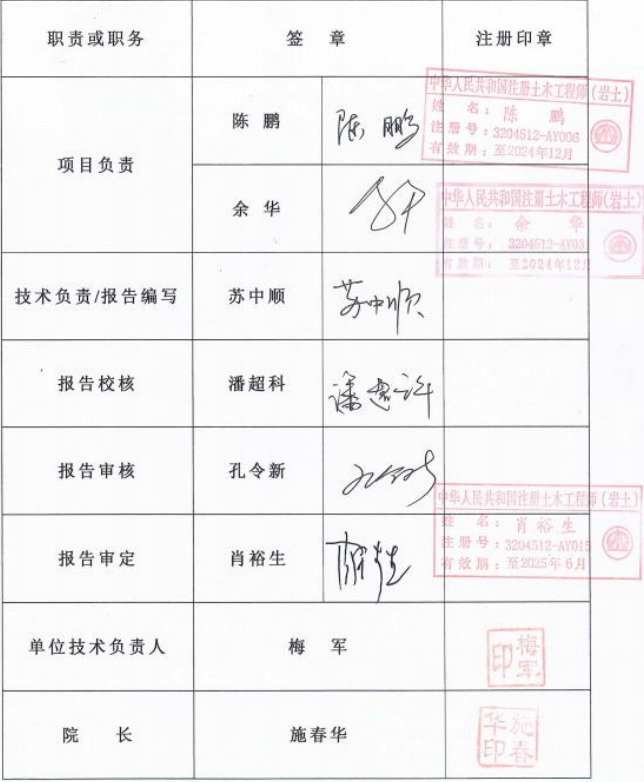 职责或职务 签 章 注册印章
项目负责
陈 鹏 陈 鹏
中华人民共和国注册土木工程师(岩土)
姓 名:陈 鹏
注册号:3204512-AY006
有效期:至2024年12月
余 华 余华
中华人民共和国注册土木工程师(岩土)
姓 名:余 华
注册号:3204512-AY03
有效期:至2024年12月
技术负责/报告编写 苏中顺 苏中顺
报告校核 潘超科
报告审核 孔令新 孔令新
中华人民共和国注册土木工程师(岩土)
姓 名:肖裕生
注册号:3204512-AY015
有效期:至2025年6月
报告审定 肖裕生
单位技术负责人 梅 军
梅军印
院 长 施春华
施春华印